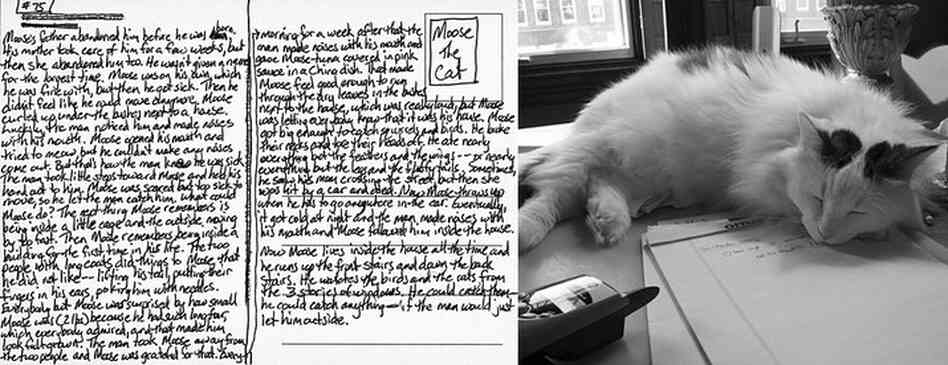 #75
Moose's father abandoned him before he was born.
His mother took care of him for a few weeks, but
then she abandoned him too. He wasn't given a name
for the longest time. Moose was on his own, which
he was fine with, but then he got sick. Then he
didn't feel like he could move anymore. Moose
curled up under the bushes next to a house.
Luckily, the man noticed him and made noises
with his mouth. Moose opened his mouth and
tried to meow, but he couldn't make any noises
come out. But that's how the man knew he was sick.
The man took little steps toward Moose and held his
hand out to him. Moose was scared but too sick to
move, so he let the man catch him. What could
Moose do? The next thing Moose remembers is
being inside a little cage and the outside moving
by too fast. Then Moose remembers being inside a
building for the first time in his life. The two
people with long coats did things to Moose that
he did not like -- lifting his tail, putting their
fingers in his ears, poking him with needles.
Everybody but Moose was surprised by how small
Moose was (2 lbs) because he had such long fur,
which everybody admired, and that made him
look full grown. The man took Moose away from
the two people and Moose was grateful for that. Every
morning for a week after that the
man made noises with his mouth and
gave Moose tuna covered in pink
sauce in a China dish. That made
Moose feel good enough to run
through the dry leaves in the bushes
next to the house, which was really loud, but Moose
was letting everybody know that it was his house. Moose
got big enough to catch squirrels and birds. He broke
their necks and tore their heads off. He ate nearly
everything but the feathers and the wings -- or nearly
everything but the legs and the fluffy tails. Sometimes,
he saw his mom crossing the street, but then she
was hit by a car and died. Now Moose throws up
when he has to go anywhere in the car. Eventually,
it got cold at night and the man made noises with
his mouth and Moose followed him inside the house.
Now Moose lives inside the house all the time and
he runs up the front stairs and down the back
stairs. He watches the birds and the cats from
the 3 stories of windows. He could catch them --
he could catch anything -- if the man would just
let him outside.
Moose
The
Cat